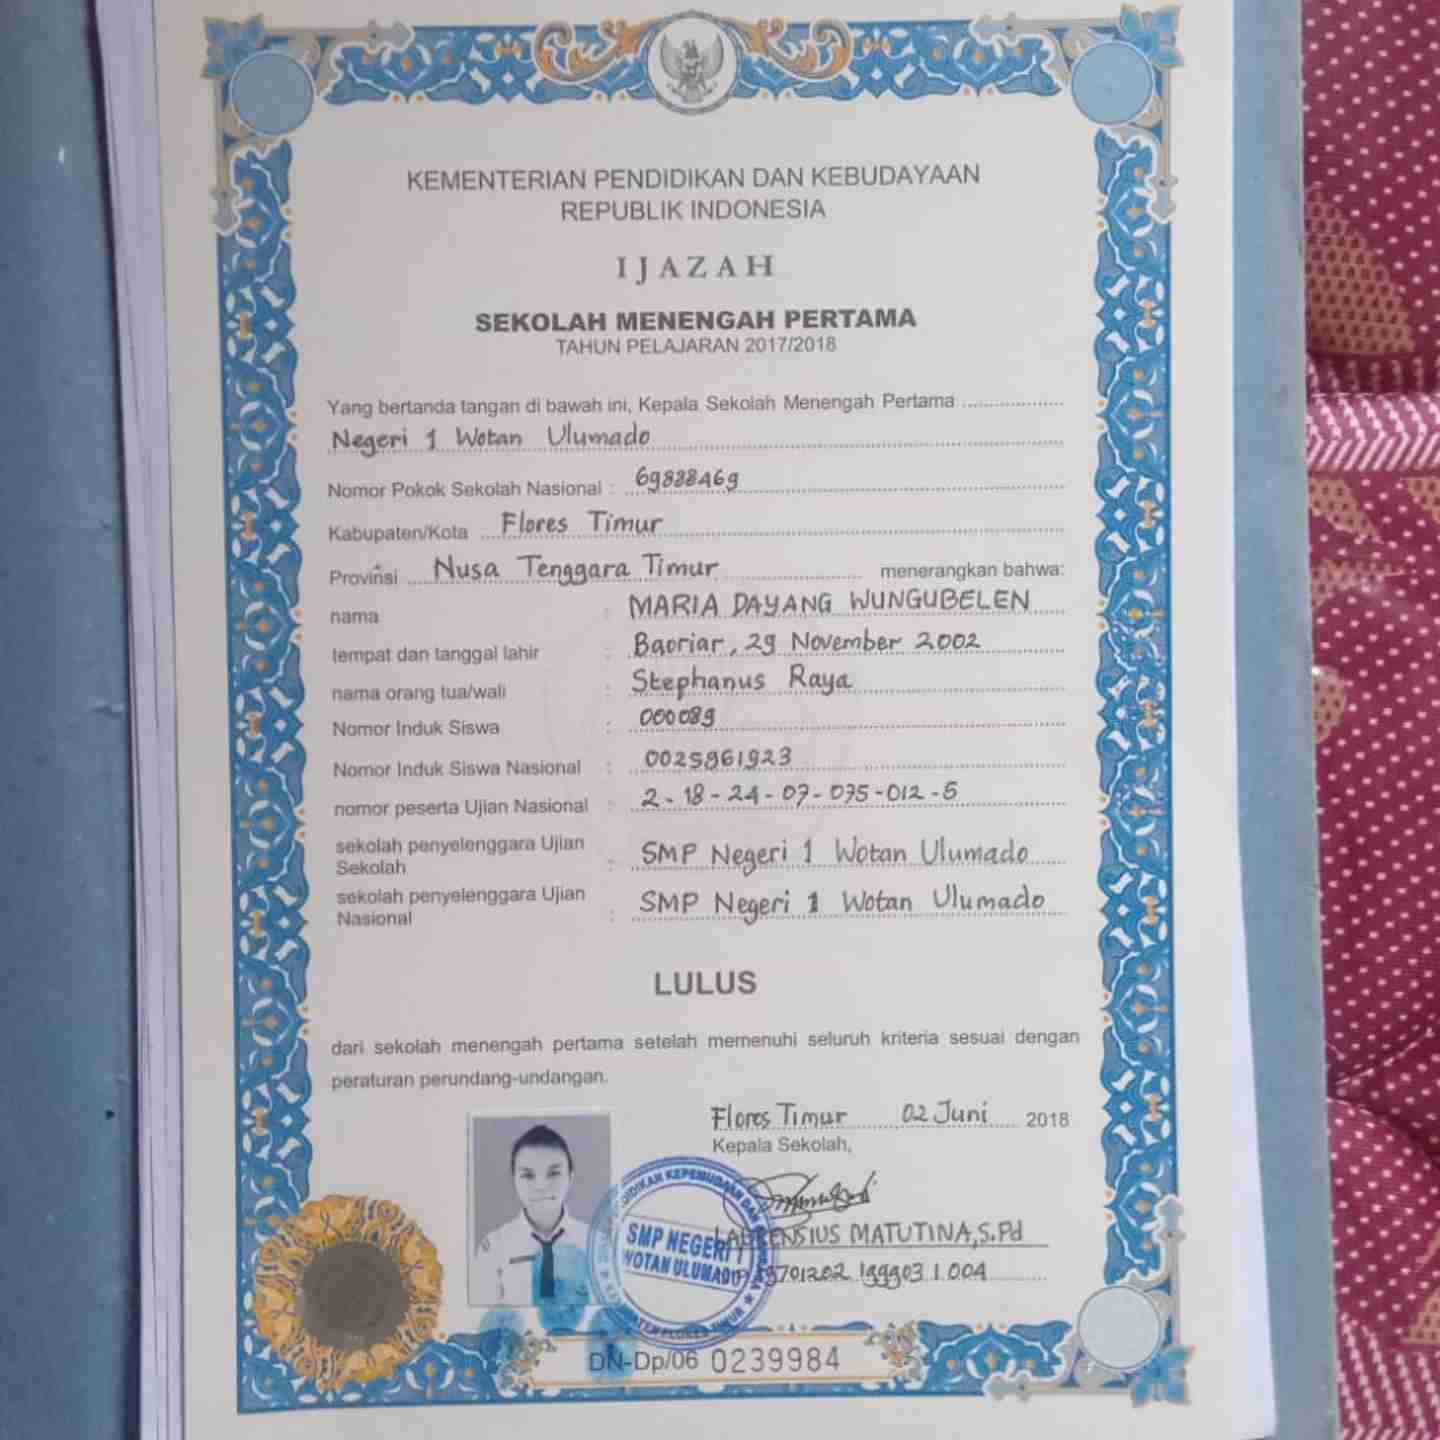 KEMENTERIAN PENDIDIKAN DAN KEBUDAYAAN
REPUBLIK INDONESIA
IJAZAH
SEKOLAH MENENGAH PERTAMA
TAHUN PELAJARAN 2017/2018
Yang bertanda tangan di bawah ini, Kepala Sekolah Menengah Pertama
Negeri 1 Wotan Ulumado
Nomor Pokok Sekolah Nasional : 69888469
Kabupaten/Kota Flores Timur
Provinsi Nusa Tenggara Timur menerangkan bahwa:
nama : MARIA DAYANG WUNGUBELEN
tempat dan tanggal lahir : Baoriar, 29 November 2002
nama orang tua/wali : Stephanus Raya
Nomor Induk Siswa : 000089
Nomor Induk Siswa Nasional : 0025961923
nomor peserta Ujian Nasional : 2-18-24-07-075-012-5
sekolah penyelenggara Ujian
Sekolah : SMP Negeri 1 Wotan Ulumado
sekolah penyelenggara Ujian
Nasional : SMP Negeri 1 Wotan Ulumado
LULUS
dari sekolah menengah pertama setelah memenuhi seluruh kriteria sesuai dengan
peraturan perundang-undangan.
Flores Timur, 02 Juni 2018
Kepala Sekolah,
LAURENSIUS MATUTINA, S.Pd
SMP NEGERI 1
WOTAN ULUMADO
DN-Dp/06 0239984